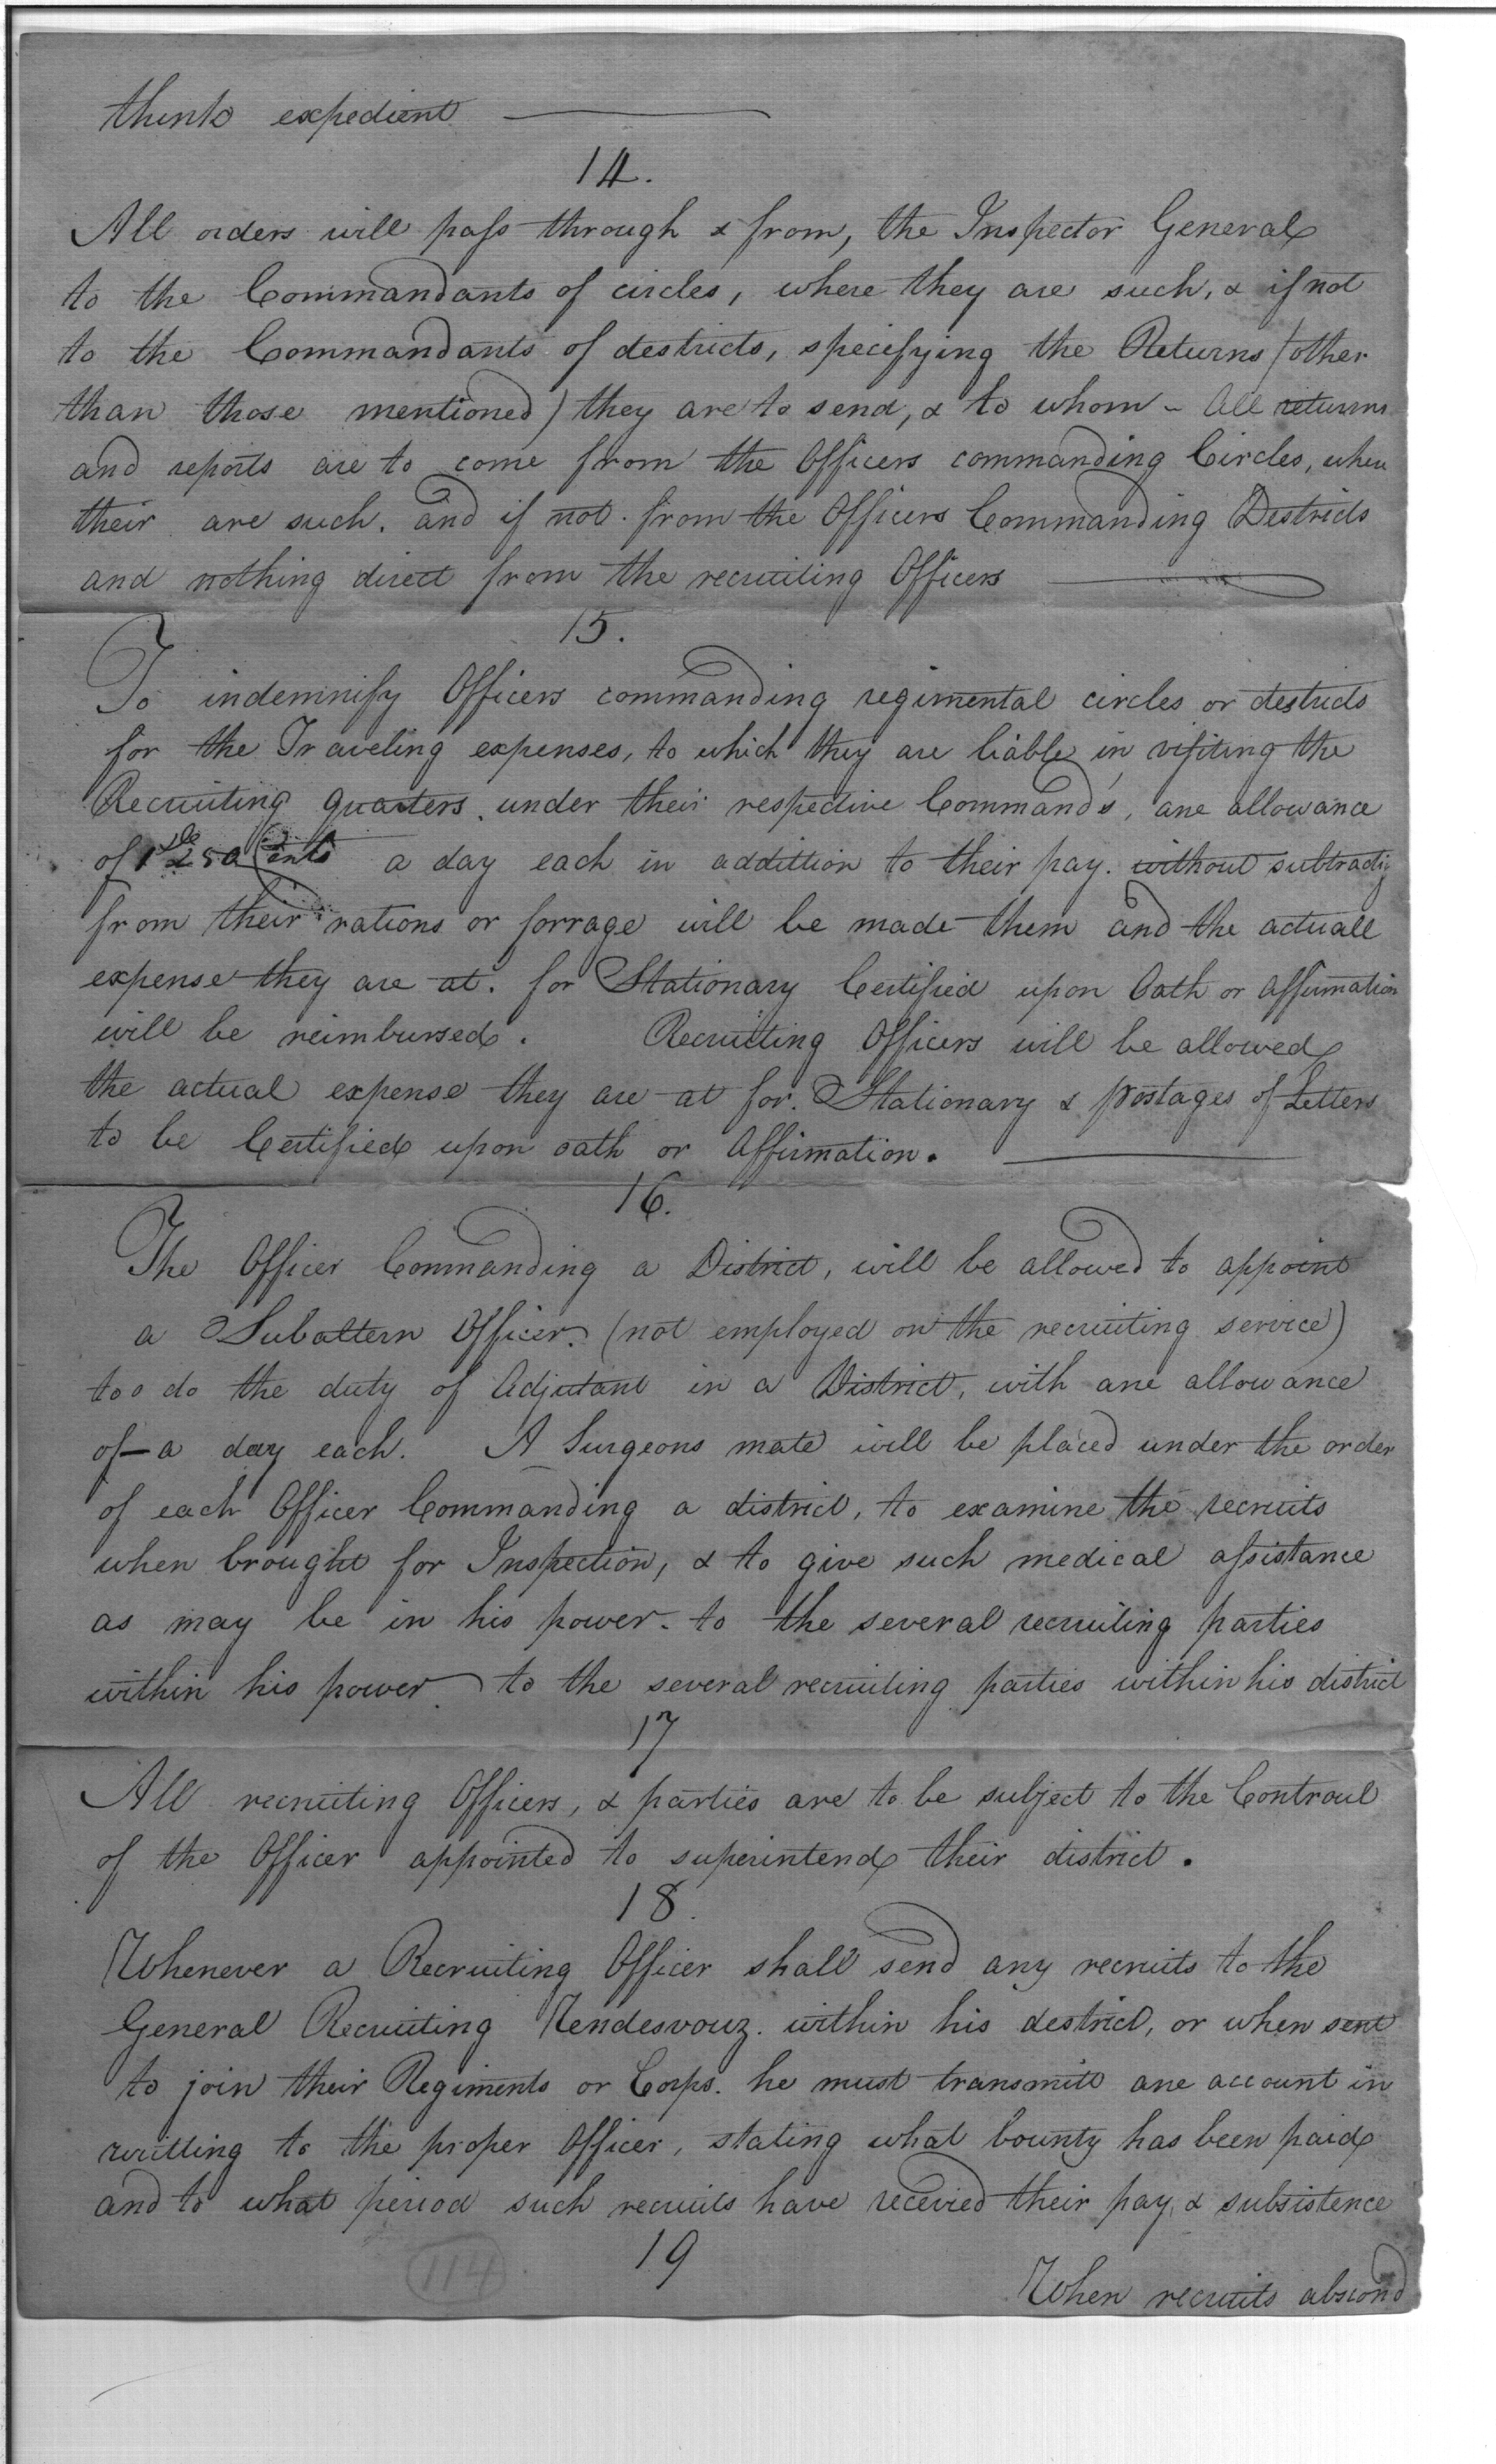 think expedient
14.
All orders will pass through & from, the Inspector General
to the Commandants of circles, where they are such, & if not
to the Commandants of destricts, specifying the Returns (other
than those mentioned) they are to send, & to whom - All returns
and reports are to come from the Officers commanding Circles, when
their are such. and if not. from the Officers Commanding Destricts
and nothing direct from the recruiting Officers
15.
To indemnify Officers commanding regimental circles or destricts
for the Traveling expenses, to which they are liable in visiting the
Recruiting quarters under their respective Commands, ane allowance
of 1 25 Cents a day each in addittion to their pay. without subtractig
from their rations or forrage will be made them and the actuall
expense they are at. for Stationary Certified upon Oath or affirmation
will be reimbursed. Recruiting Officers will be allowed
the actual expense they are at for. Stationary & postages of Letters
to be Certified upon oath or Affirmation.
16.
The Officer Commanding a District, will be allowed to appoint
a Subaltern Officer. (not employed on the recruiting service)
too do the duty of Adjutant in a District, with ane allowance
of — a day each. A Surgeons mate will be placed under the order
of each Officer Commanding a district, to examine the recruits
when brought for Inspection, & to give such medical assistance
as may be in his power. to the several recruiting parties
within his power to the several recruiting parties within his district
17
All recruiting Officers, & parties are to be subject to the Controul
of the Officer appointed to superintend their district.
18.
Whenever a Recruiting Officer shall send any recruits to the
General Recruiting Rendesvouz. within his destrict, or when sent
to join their Regiments or Corps. he must transmitt ane account in
writting to the proper Officer, stating what bounty has been paid
and to what period such recruits have received their pay, & subsistence
19
When recruits abscond
114